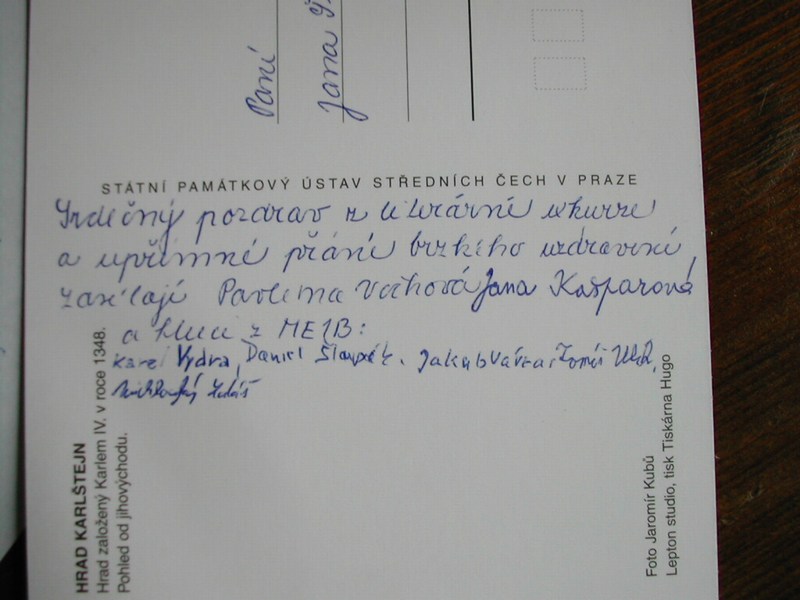 Paní
Jana
STÁTNÍ PAMÁTKOVÝ ÚSTAV STŘEDNÍCH ČECH V PRAZE
Srdečný pozdrav z literární exkurze
a upřímné přání brzkého uzdravení
zasílají Pavlína Vachová, Jana Kašparová
a kluci z ME1B:
Karel Vydra, Daniel Jakub Vávra, Tomáš
HRAD KARLŠTEJN
Hrad založený Karlem IV. v roce 1348.
Pohled od jihovýchodu.
Foto Jaromír Kubů
Lepton studio, tisk Tiskárna Hugo